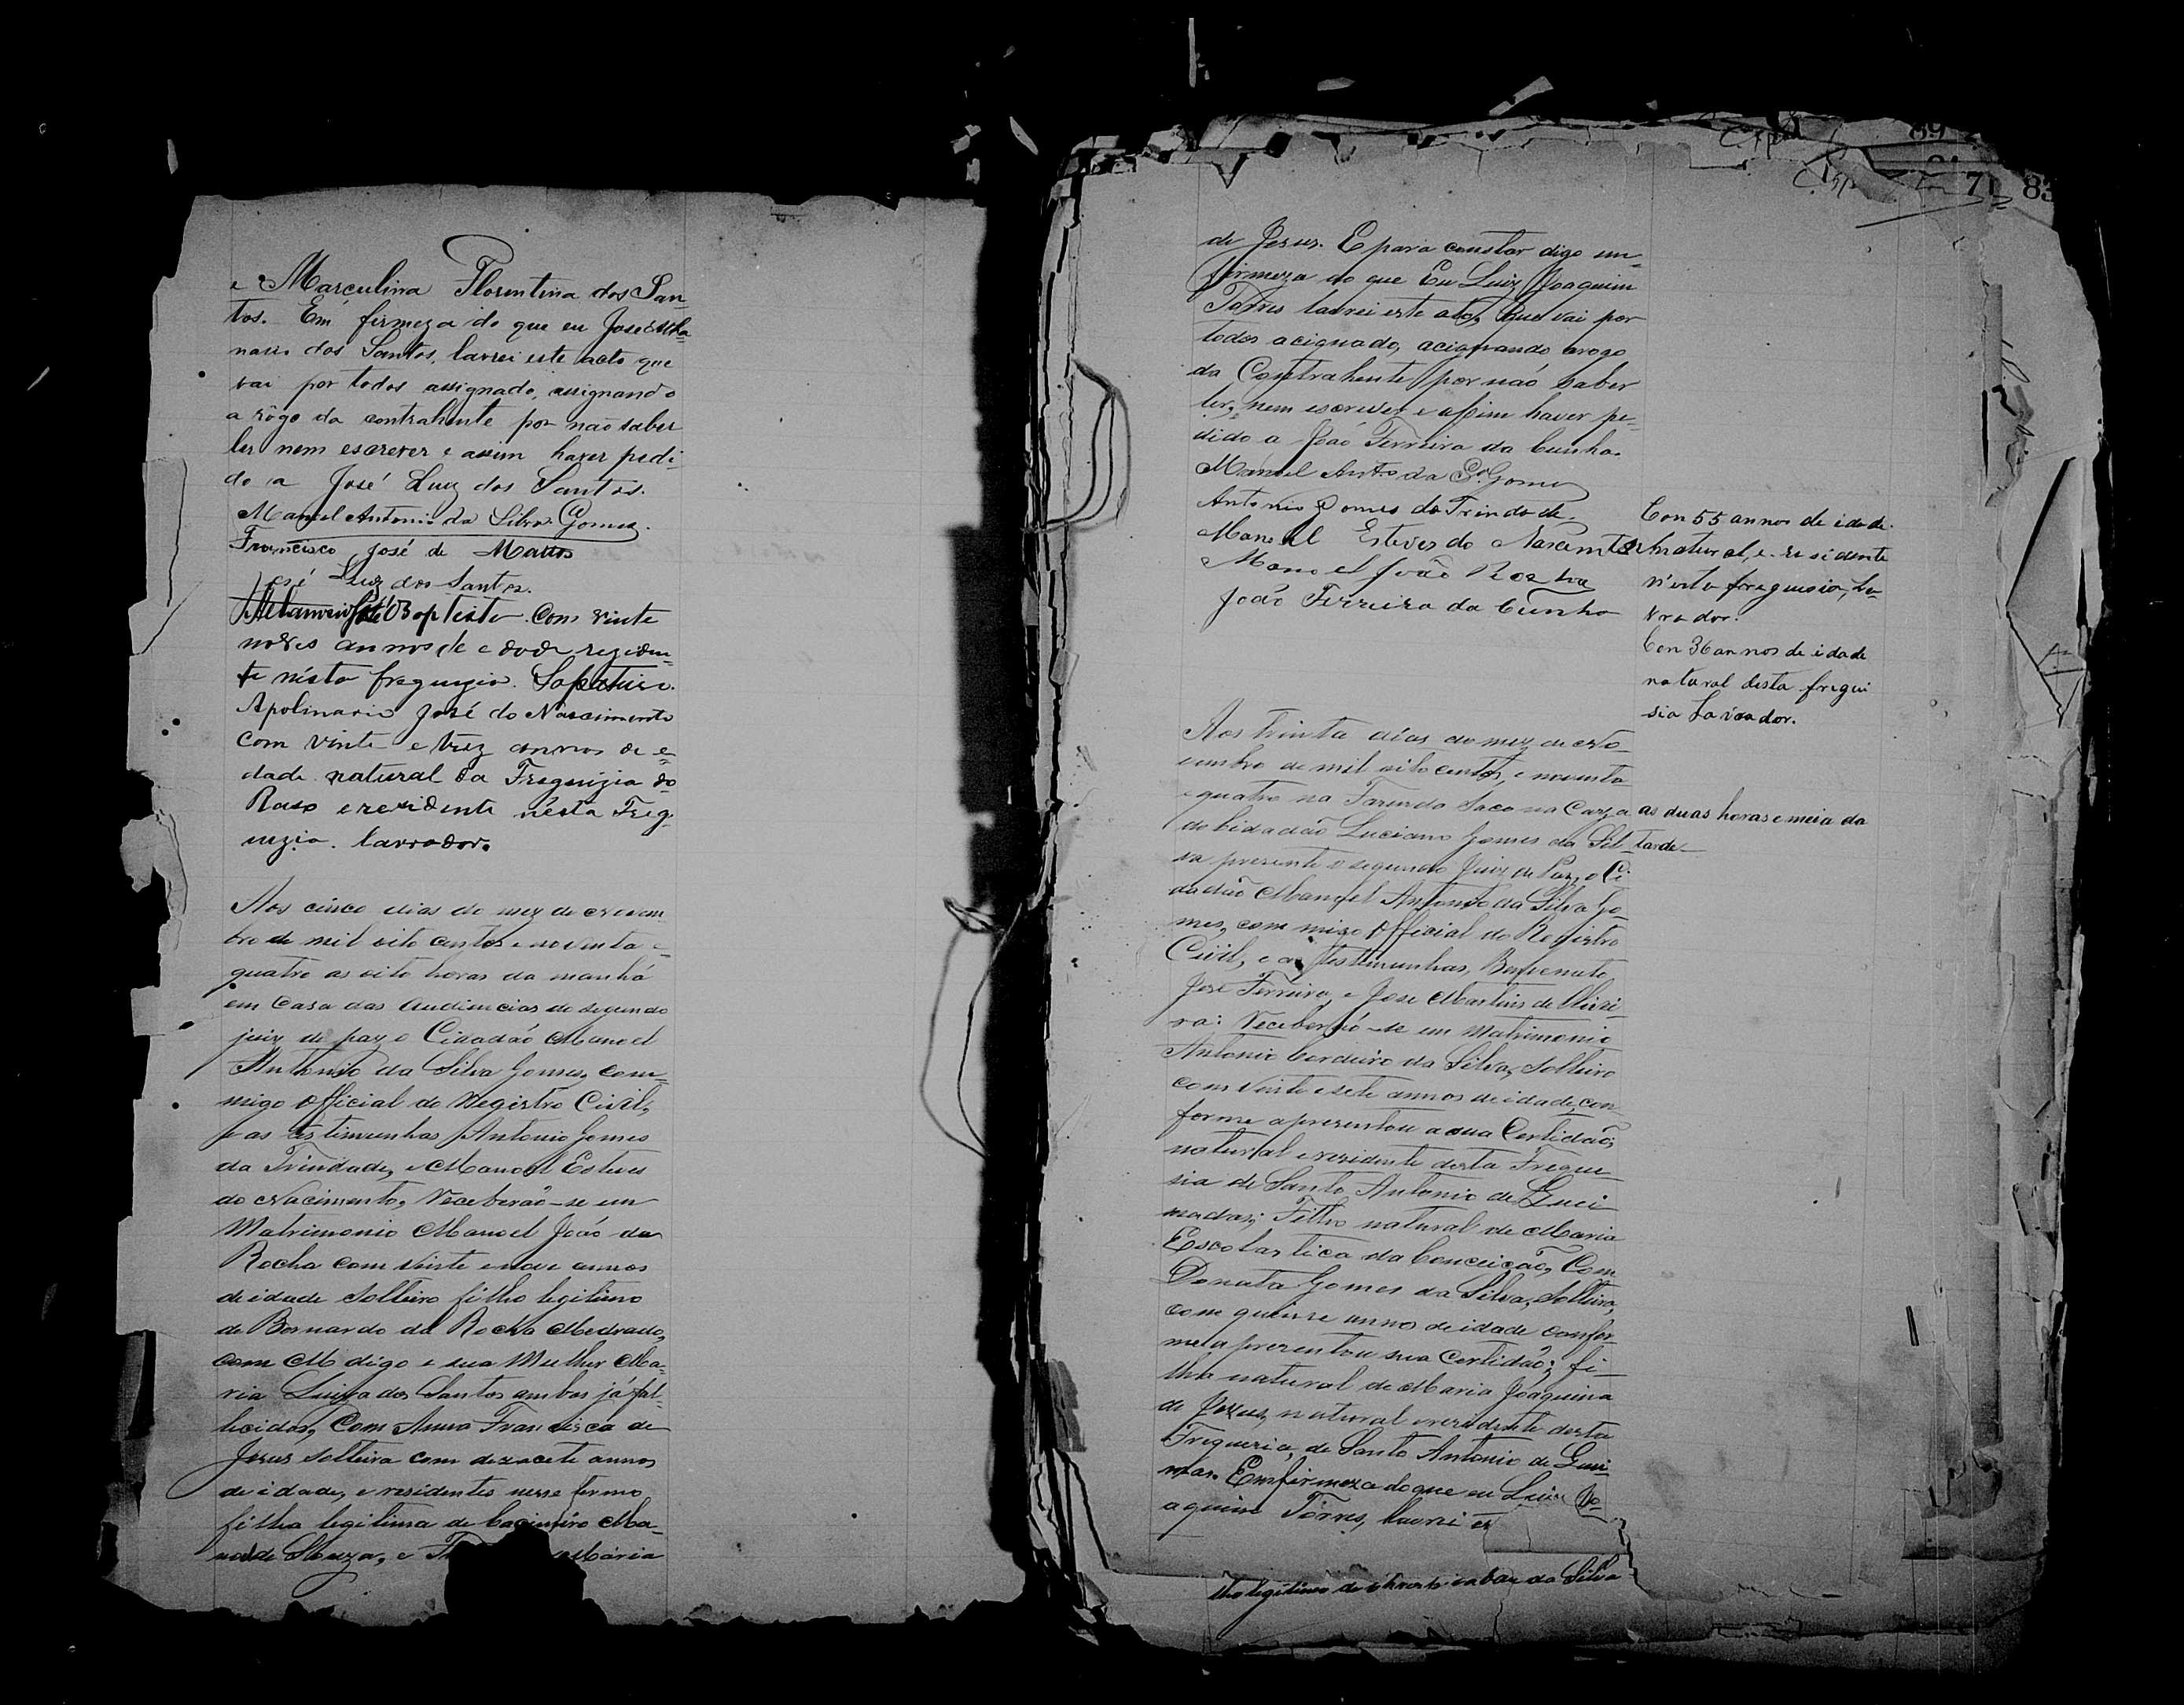 e Marculina Florentina dos San-
tos. Em firmeza do que eu José Atha-
nasio dos Santos, lavrei este acto que
vai por todos assignado, assignando
a rôgo da contrahente por não saber
ler nem escrever e assim haver pedi
do a José Luiz dos Santos.
Manuel Antonio da Silva Gomes.
Francisco José de Mattos
José Luiz dos Santos.
José Baptista. Com vinte
noves annos de edade reziden-
te nésta freguezia. Sapateiro.
Apolinario José do Nascimento
com vinte e trez annos de e-
dade natural da Freguizia do
Raso e rezidente nésta Freg-
uezia. lavrador.
Aos cinco dias do mez de
bro de mil oito centos e noventa e
quatro as oito horas da manhã
em Casa das Audiencias do segundo
juiz de paz o Cidadão Manoel
Antonio da Silva Gomes, com-
migo official do Registro Civil,
e as testimunhas Antonio Gomes
da Trindade, e Manoel Esteves
do Nacimento, Receberão-se em
Matrimonio Manoel João da
Rocha com vinte e nove annos
de idade Solteiro filho legitimo
de Bernardo da Rocha Medrado,
com M digo e sua Mulher Ma-
ria Luiza dos Santos ambos já fal-
lecidos, Com Anna Francisca de
Jesus Solteira com dezacete annos
de idade, e residentes nesse termo
filha legitima de Cacimiro Ma-
noel de Souza, e Maria
71 83
de Jesus. E para constar digo em-
firmeza do que Eu Luiz Joaquim
Torres lavrei este ato, que vai por
todos acignado, acignando arogo
da Contrahente por não saber
ler, nem escrever e assim haver pe-
dido a João Ferreira da Cunha.
Manoel Antº da Sª Gomes
Antonio Gomes da Trindade.
Manoel Esteves do Nascimto
Manoel João Rocha
João Ferreira da Cunha
Con 55 annos de idade.
natural, e residente
n'esta freguesia, la-
vrador.
Con 36 annos de idade
natural desta fregui
sia Lavrador.
Aos trinta dias do mez de
embro de mil oito centos, e noventa
e quatro na Fazenda Saco na Caza as duas horas e meia da
do Cidadão Luciano Gomes da Sil- tarde
va presente o segundo Juiz de Paz, o Ci-
dadão Manoel Antonio da Silva Go-
mes, com migo Official do Registro
Civil, e as testimunhas, Benvenuto
José Ferreira, e José Martins de Olivei-
ra: Receberão-se em Matrimonio
Antonio Cordeiro da Silva, Solteiro
com vinte e sete annos de idade, con-
forme apresentou a sua Certidão;
natural e rezidente desta Fregue
sia de Santo Antonio de Quei-
madas; Filho natural de Maria
Escolastica da Conceicão, Com
Donata Gomes da Silva, Solteira,
com quinse annos de idade confor-
me aprezentou sua Certidão; fi-
lha natural de Maria Joaquina
de Jezus, natural e rezidente desta
Freguezia, de Santo Antonio de
Emfirmeza do que eu Luiz Jo-
aquim Torres, lavrei es
lho legitimo de da Silva